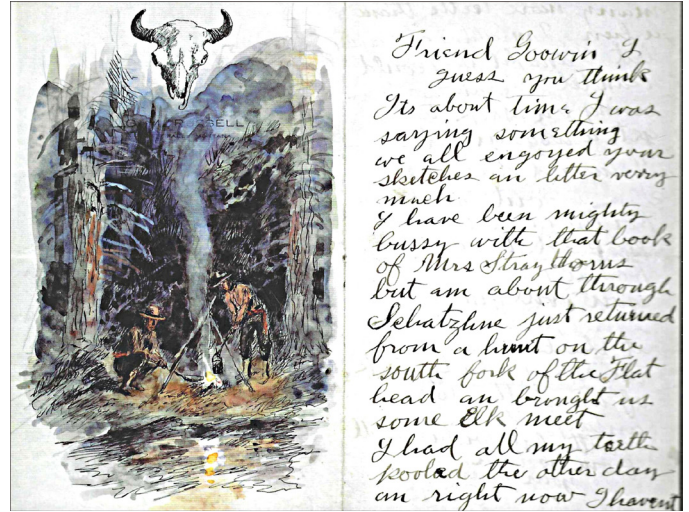 Friend Goowin I
guess you think
Its about time I was
saying something
we all engoyed your
sketches an letter verry
much
I have been mighty
bussy with that book
of Mrs Straythorns
but am about through
Schatzline just returned
from a hunt on the
south fork of the Flat
head an brought us
some Elk meet
I had all my teeth
poolad the other day
an right now I havent